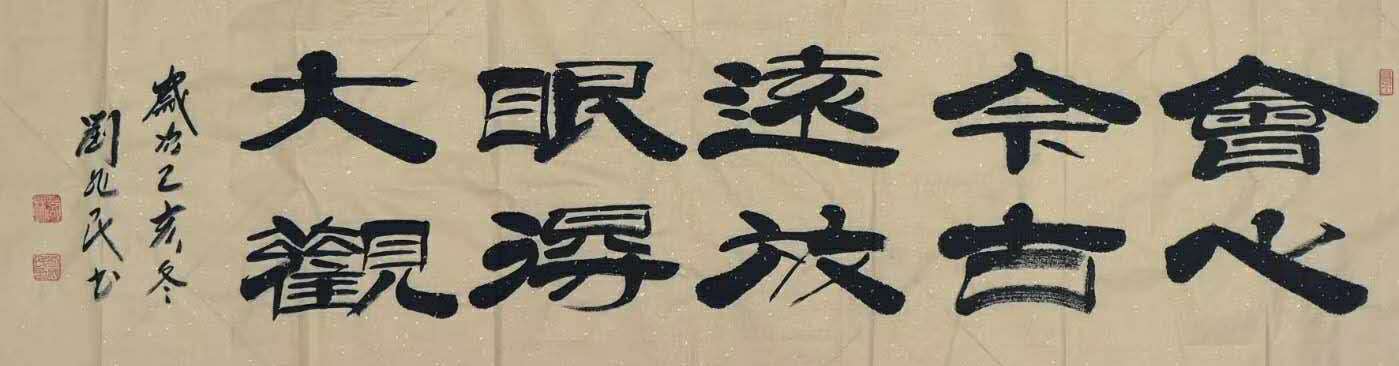 會心
今古
遠放
眼得
大觀
歲次己亥冬
劉民书